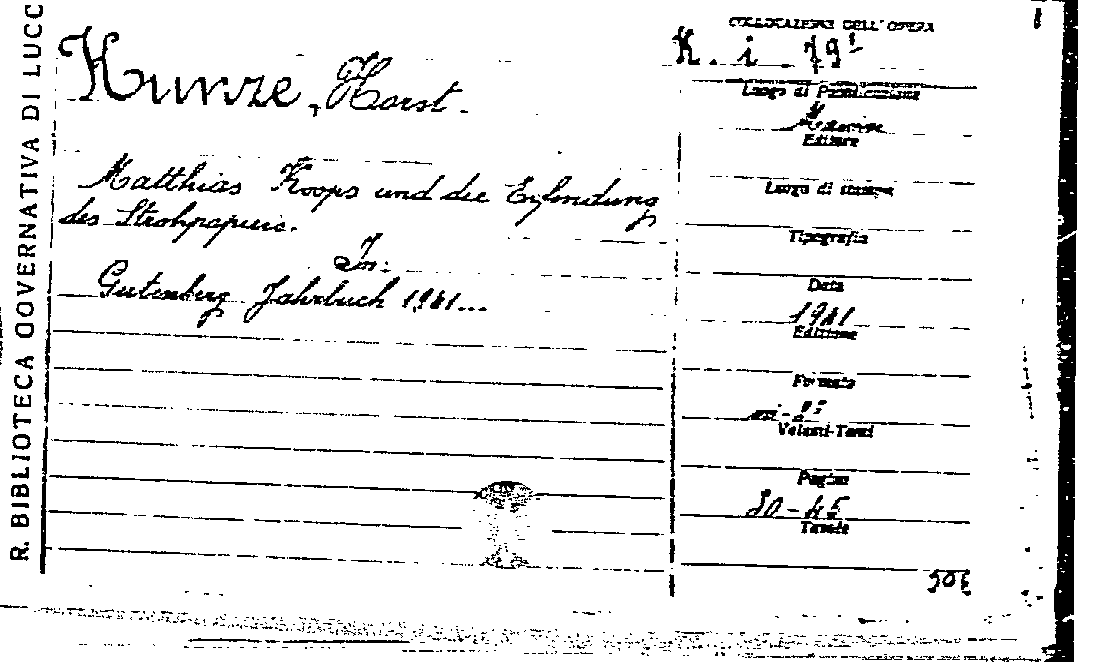 R. BIBLIOTECA GOVERNATIVA DI LUCC
Kunze, Horst.
Matthias Koops und die Erfindung
des Strohpapiers.
In:
Gutenberg Jahrbuch 1941...
COLLOCAZIONE DELL'OPERA
K. i. 79
Luogo di Pubblicazione
Editore
Luogo di stampa
Tipografia
Data
1941
Edizione
Formato
in-8°
Volumi-Tomi
Pagine
30-45
Tavole